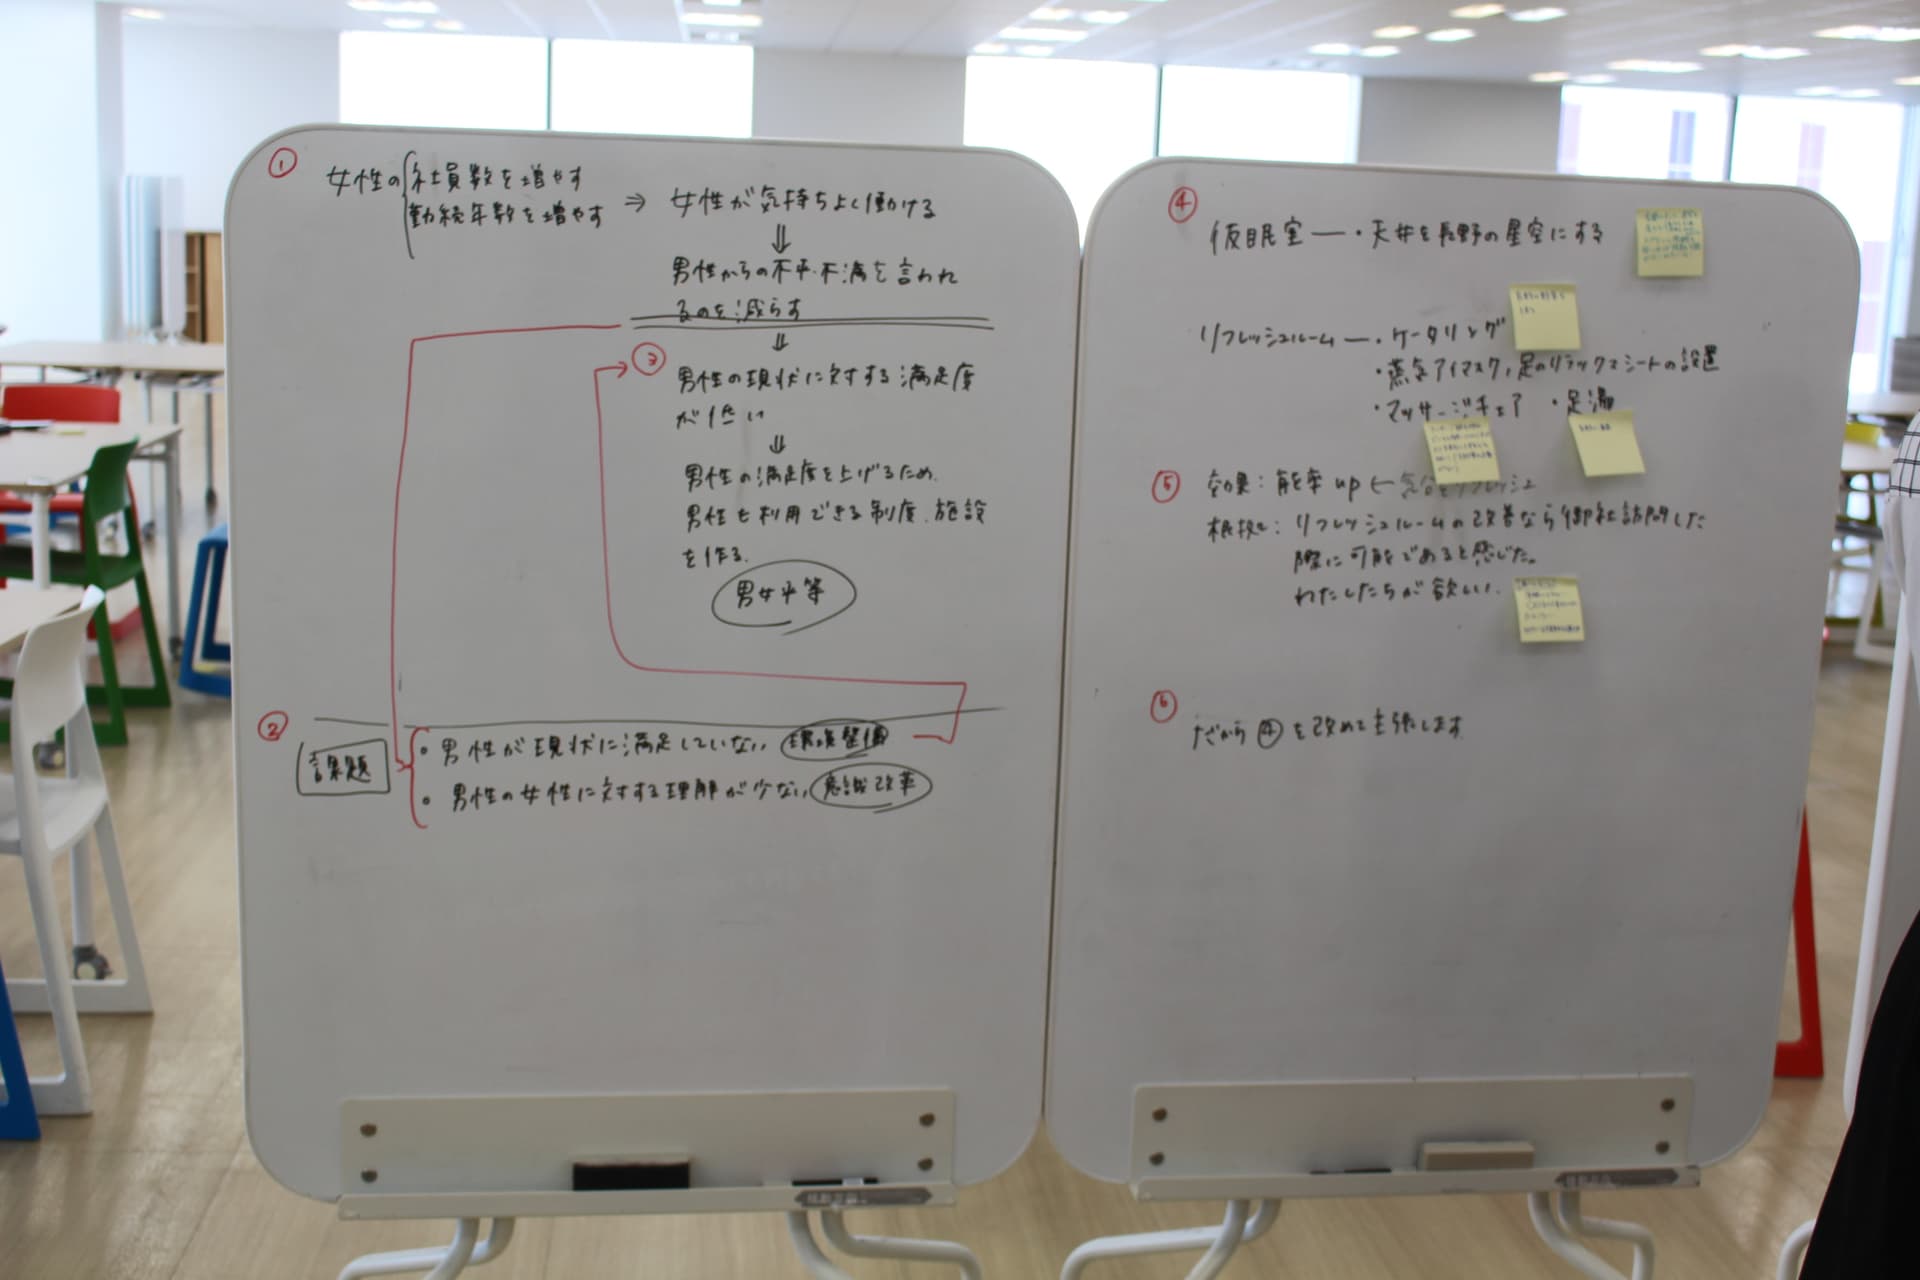 ①
女性の 社員数を増やす
勤続年数を増やす
⇒ 女性が気持ちよく働ける
⇓
男性からの不平・不満を言われ
るのを減らす
⇓
③
男性の現状に対する満足度
が低い
⇓
男性の満足度を上げるため、
男性も利用できる制度、施設
を作る.
男女平等
②
課題
・男性が現状に満足していない 環境整備
・男性の女性に対する理解が少ない 意識改革
④
仮眠室 ー ・天井を長野の星空にする
リフレッシュルーム ー ・ケータリング
・蒸気アイマスク, 足のリラックスシートの設置
・マッサージチェア ・足湯
⑤
効果: 能率up ← 気分をリフレッシュ
根拠: リフレッシュルームの改善なら御社訪問した
際に可能であると感じた。
わたしたちが欲しい.
⑥
だから④を改めて主張します